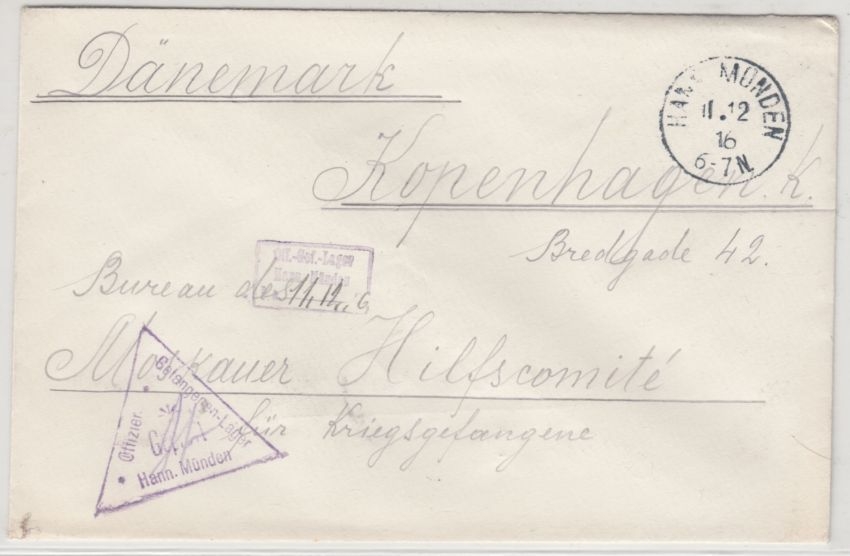 Dänemark
HANN. MÜNDEN
11.12
16
6-7 N.
Kopenhagen. K.
Bredgade 42.
Off.-Gef.-Lager
Hann. Münden
Bureau des
11.12.
Moskauer Hilfscomité
für Kriegsgefangene
Offizier- Gefangenen-Lager
Hann. Münden